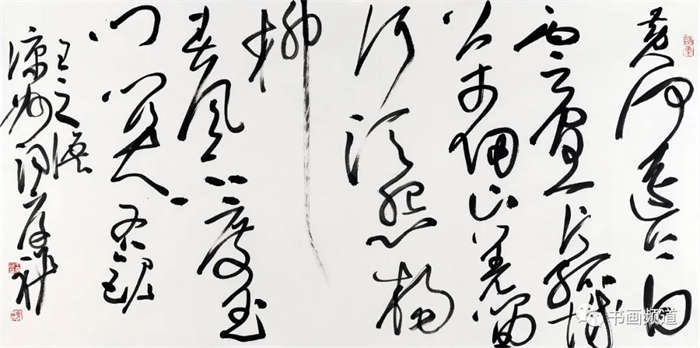 黄河远上白
云间一片孤城
万仞山羌笛
何须怨杨
柳
春风不度玉
门关右录
王之涣
凉州词
书画频道